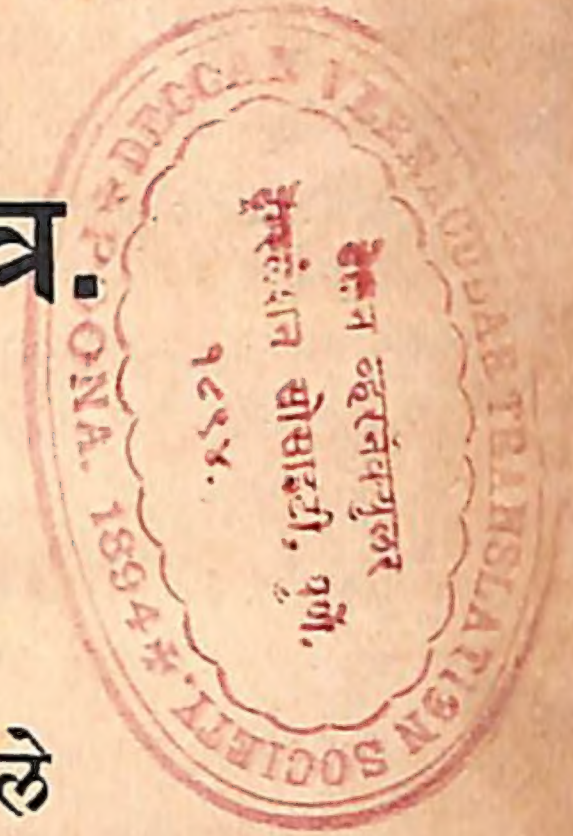 त्र.
DECCAN VERNACULAR TRANSLATION SOCIETY.
* POONA. 1894 *
डेक्कन व्हरनॅक्युलर
ट्रान्सलेशन सोसाइटी, पुणें.
१८९४.
ले